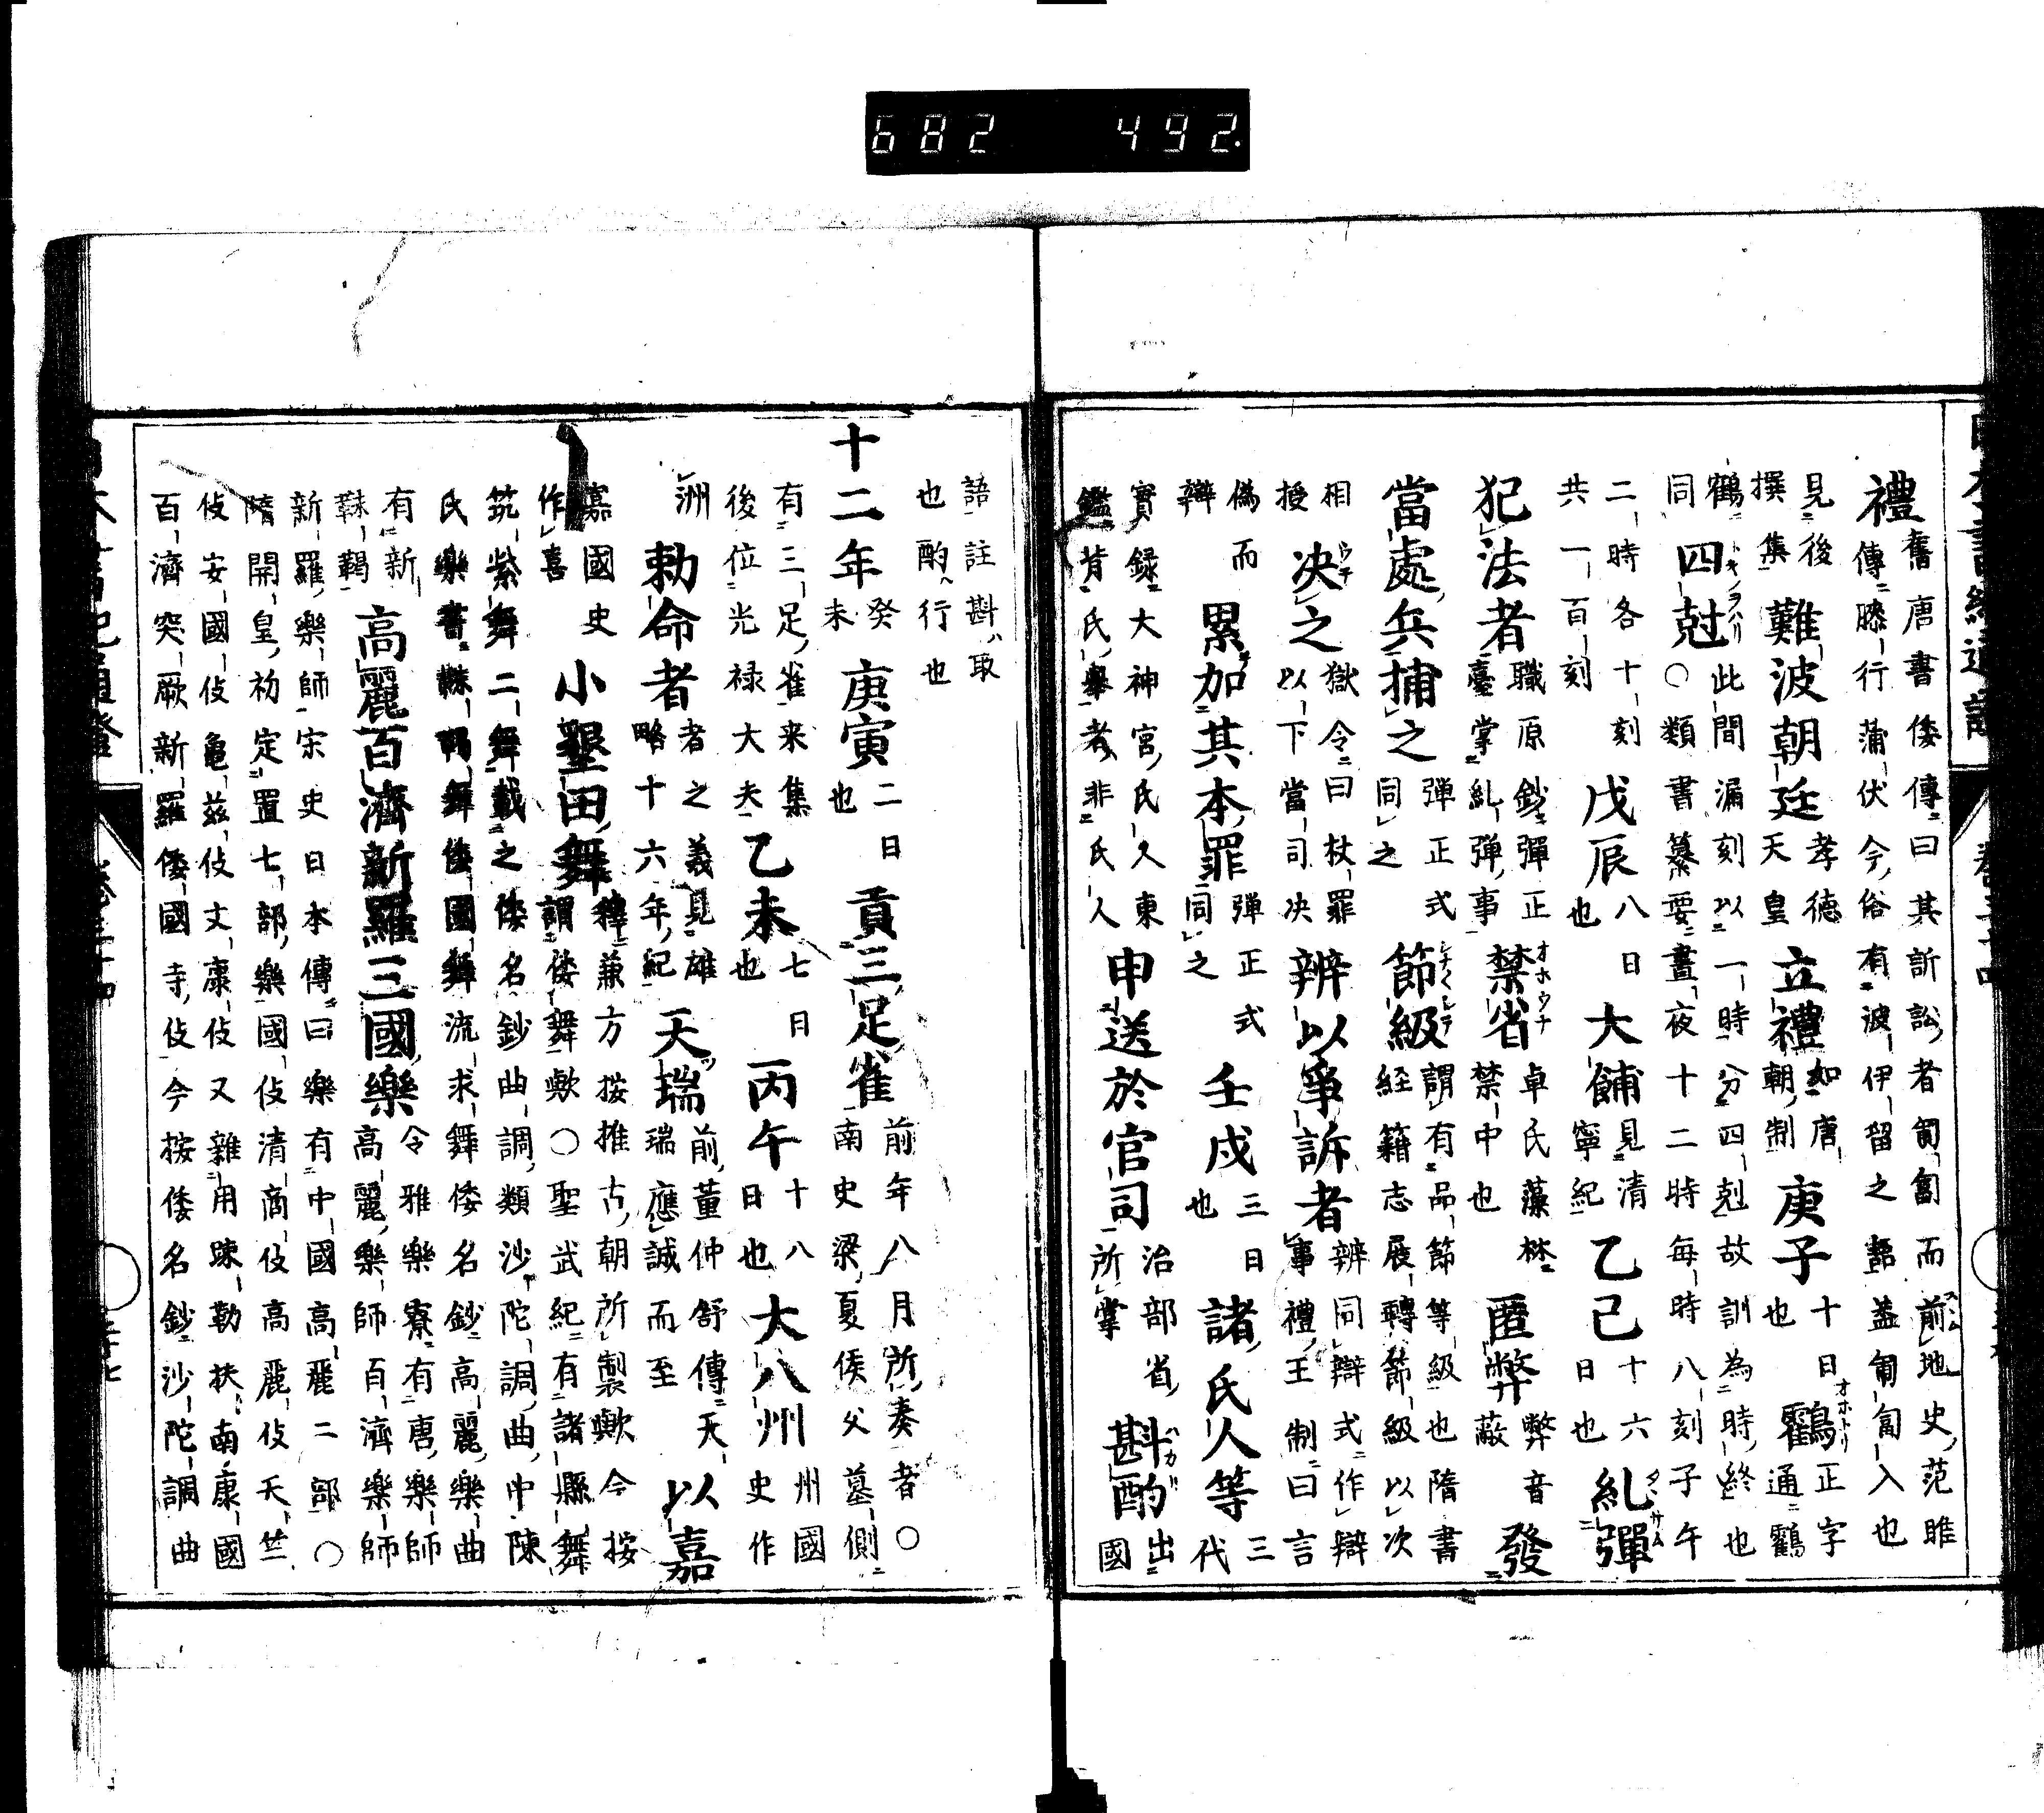 682 492.
禮舊唐書倭傳曰其訴訟者匍匐而前地史范睢
傳膝行蒲伏今俗有波伊留之語蓋匍匐入也
見後撰集難波朝廷孝德天皇立禮如唐朝制庚子十日也鸖オホトリ正字通鸖
鶴四尅トキノヲハリ此間漏刻以一時分四剋故訓為時終也
同○類書纂要晝夜十二時每時八刻子午
二時各十刻共一百刻戊辰八日也大餔見清寧紀乙巳十六日也糺彈タヾサム
犯法者職原鈔彈正臺掌糺彈事禁省オホウチ卓氏藻林禁中也匿弊弊音蔽發
當處兵捕之弾正式同之節級シナ〳〵ニシテ謂有品節等級也隋書経籍志展轉節級以次
相授決之ウチ獄令曰杖罪以下當司決辨以爭訴者辨同辯式作辯事禮王制曰言
偽而辯累加其本罪弾正式同之壬戌三日也諸氏人等三代
實録大神宮氏人東鑑背氏舉者非氏人申送於官司治部省所掌斟酌ハカリ出國
語註斟取也酌行也
十二年癸未庚寅二日也貢三足雀前年八月所奏者○南史梁夏侯父墓側
有三足雀来集後位光禄大夫乙未七日也丙午十八日也大八州州國史作
洲勅命者者之義見雄略十六年紀天瑞前董仲舒傳天瑞應誠而至以嘉
嘉國史作喜小墾田舞釋兼方按推古朝所製歟今按謂倭舞歟○聖武紀有諸縣舞
筑紫舞二舞載之倭名鈔曲調類沙陀調曲中陳
氏樂書靺鞨舞倭國舞流求舞倭名鈔高麗樂曲
有新靺鞨高麗百濟新羅三國樂令雅樂寮有唐樂師高麗樂師百濟樂師
新羅樂師宋史日本傳曰樂有中國高麗二部○
隋開皇初定置七部樂國伎清商伎高麗伎天竺
伎安國伎龜茲伎文康伎又雜用踈勒扶南康國
百濟突厥新羅倭國寺伎今按倭名鈔沙陀調曲